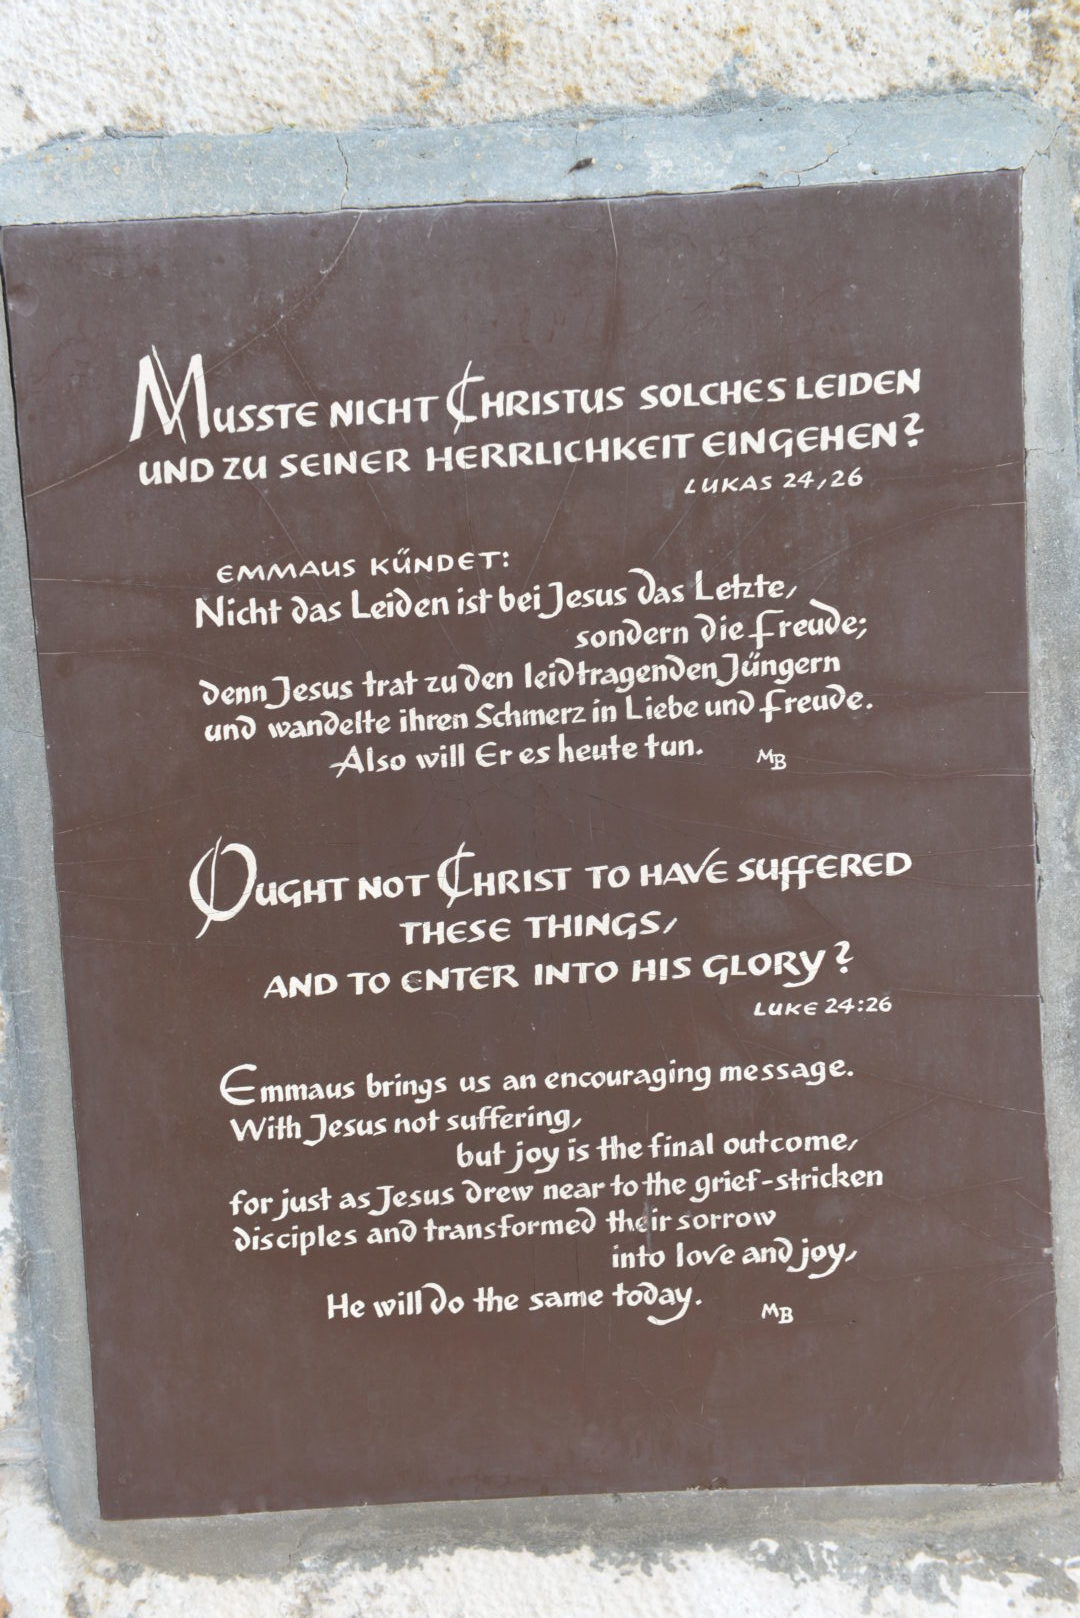 MUSSTE NICHT CHRISTUS SOLCHES LEIDEN
UND ZU SEINER HERRLICHKEIT EINGEHEN?
LUKAS 24,26
EMMAUS KÜNDET:
Nicht das Leiden ist bei Jesus das Letzte,
sondern die Freude;
denn Jesus trat zu den leidtragenden Jüngern
und wandelte ihren Schmerz in Liebe und Freude.
Also will Er es heute tun. MB
OUGHT NOT CHRIST TO HAVE SUFFERED
THESE THINGS,
AND TO ENTER INTO HIS GLORY?
LUKE 24:26
Emmaus brings us an encouraging message.
With Jesus not suffering,
but joy is the final outcome,
for just as Jesus drew near to the grief-stricken
disciples and transformed their sorrow
into love and joy,
He will do the same today. MB